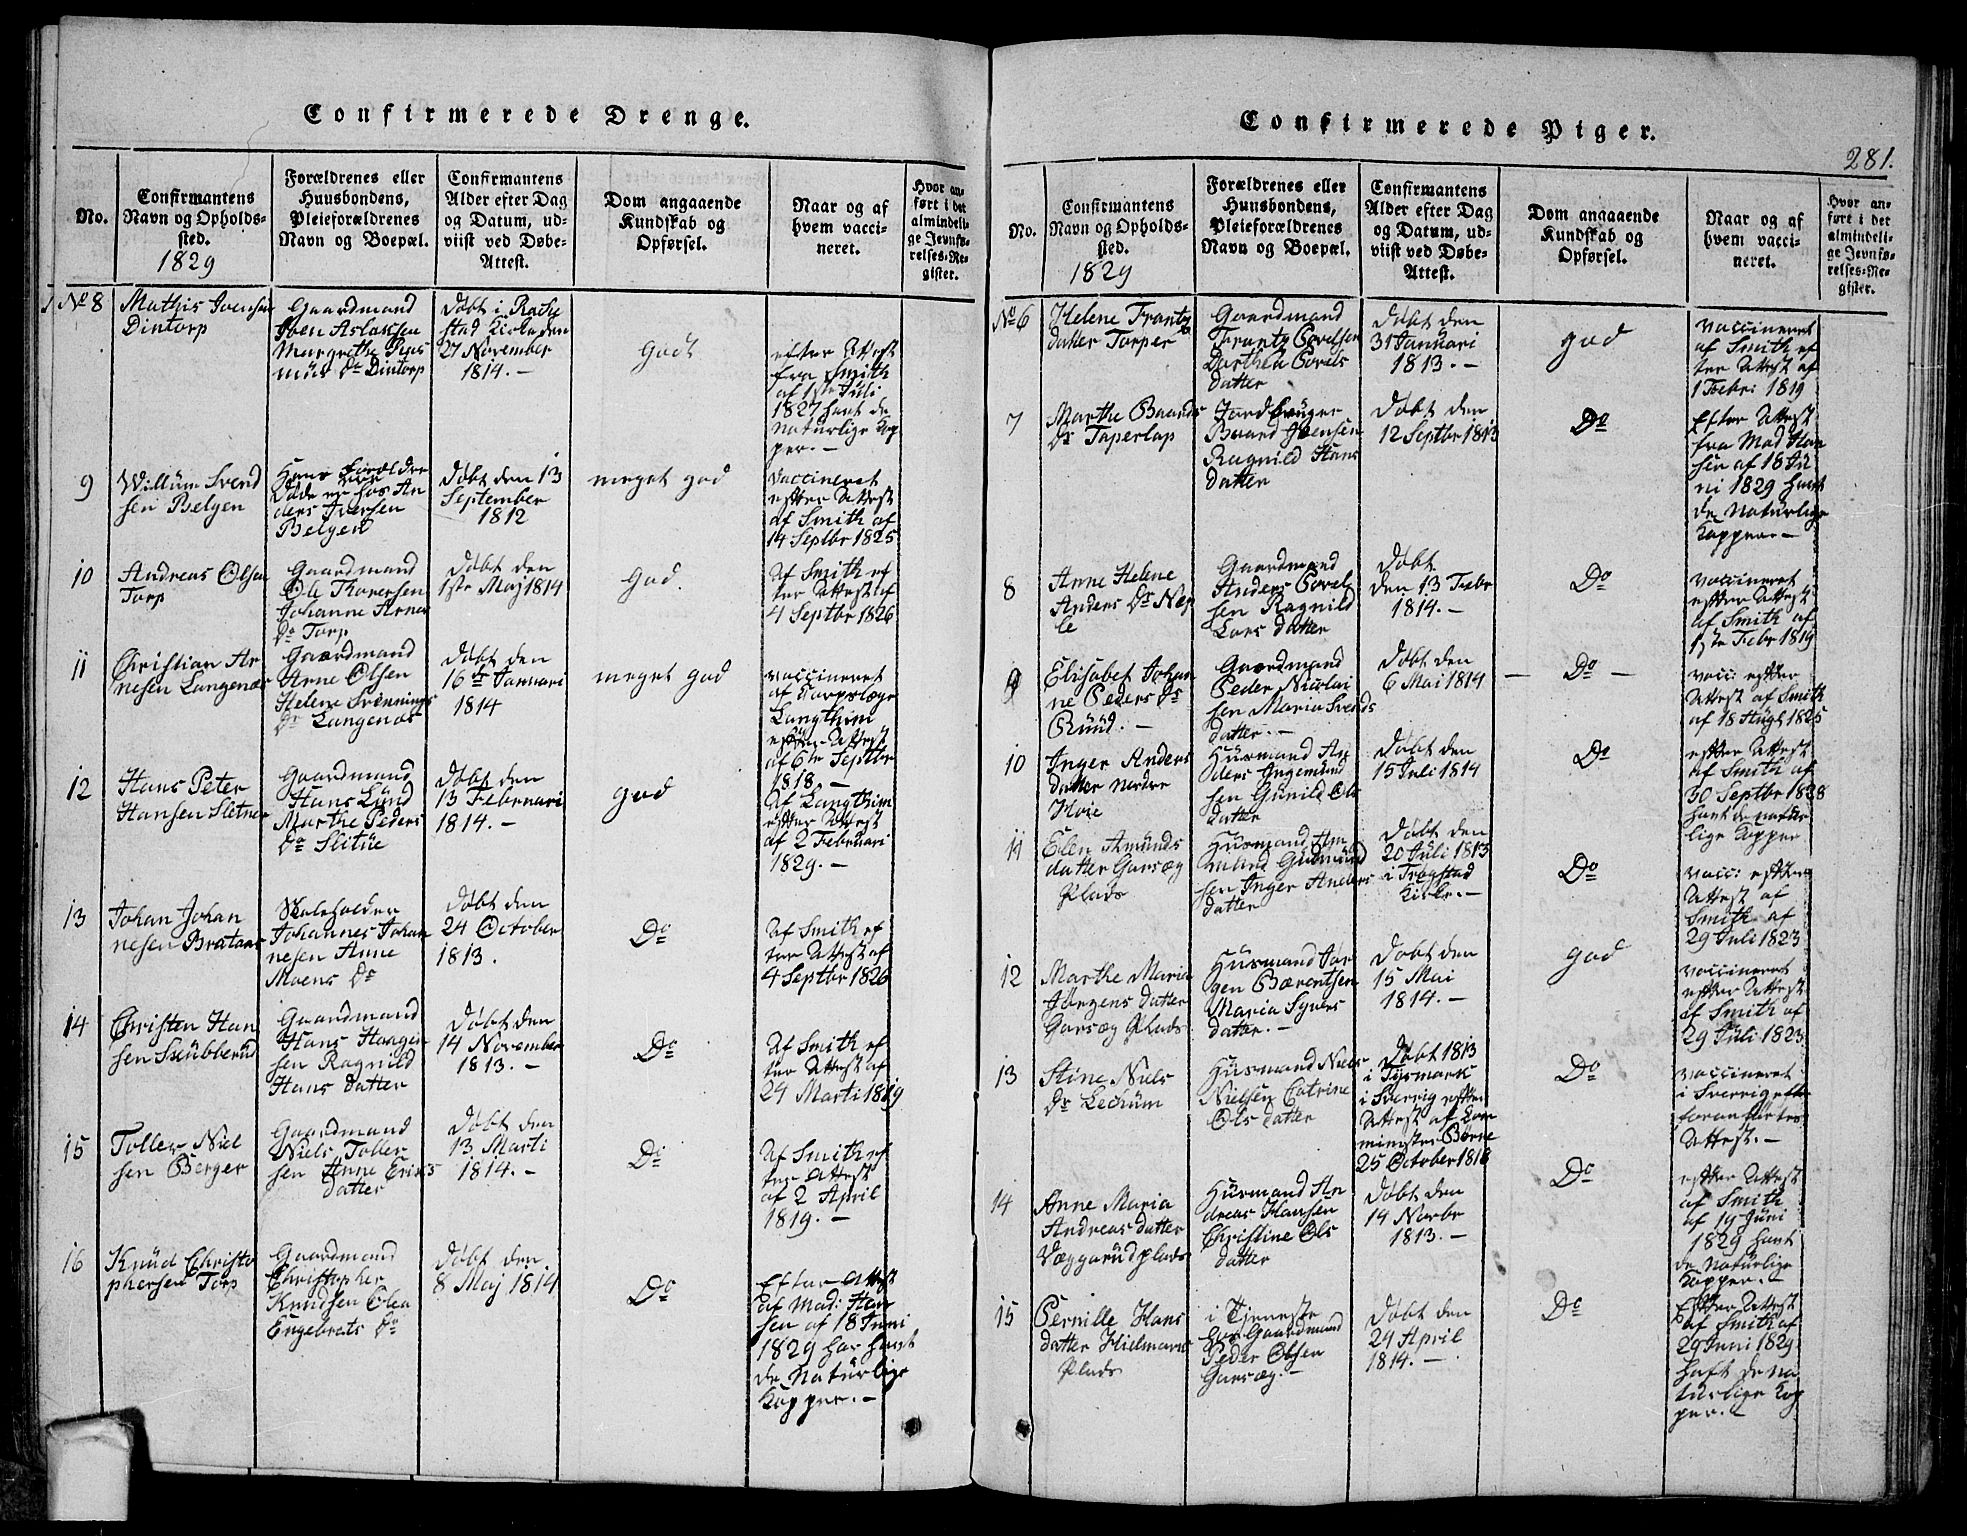 Confirmerede Drenge.
No.
Confirmantens
Navn og Opholds-
sted.
1829
Forældrenes eller
Huusbondens,
Pleieforældrenes
Navn og Boepæl.
Confirmantens
Alder efter Dag
og Datum, ud-
viist ved Døbe-
Attest.
Dom angaaende
Kundskab og
Opførsel.
Naar og af
hvem vacci-
neret.
Hvor an-
ført i det
almindeli-
ge Jevnfø-
relses-Re-
gister.
No 8
Mathis Ivensen
Dintorp
Gaardmand
Iven Aslaksen
Margrethe Ras
müs Dr Dintorp
Døbt i Rakke
stad Kirke den
27 November
1814. -
Godt
efter Attest
fra Smith
af 1ste Juli
1827 havt de
Naturlige Kop
per. -
9
Willüm Svend
sen Belgen
Hans Forældre
Døde er hos An
ders Iversen
Belgen
Døbt den 13
September
1812
meget god
vaccineret
efter Attest
af Smith af
14 Septbr 1825
10
Andreas Olsen
Torp
Gaardmand
Ole Thoresen
Johanne Arnes
Dr Torp
Døbt den
1ste Maj 1814
God.
Af Smith ef
ter Attest af
4 Septbr 1826
11
Christian Ar
nesen Langenæs
Gaardmand
Arne Olsen
Helene Svennings
Dr Langenæs
Døbt den
16de Januari
1814
meget god
vaccineret
af Corpslæge
Langthim
efter Attest
af 6te Septbr
1818. -
12
Hans Peter
Hansen Sletner
Gaardmand
Hans Lünd
Marthe Peders
Dr Slitüe
Døbt den
13 Februari
1814. -
god
Af Langthim
efter Attest
af 2 Februari
1829. -
13
Johan Johan
nesen Brataas
Skoleholder
Johannes Johan
nesen Anne
Moens Dr
Døbt den
24 October
1813.
Do
Af Smith ef
ter Attest af
4 Septbr 1826
14
Christen Han
sen Skübberüd
Gaardmand
Hans Haagen
sen Ragnild
Hans datter
Døbt den
14 November
1813. -
Do
Af Smith ef
ter Attest af
24 Marti 1819
15
Toller Niel
sen Berger
Gaardmand
Niels Toller
sen Anne Eriks
datter
Døbt den
13 Marti
1814. -
Do
Af Smith ef
ter Attest
af 2 April
1819. -
16
Knüd Christo
phersen Torp
Gaardmand
Christopher
Knudsen Olea
Engebrets Dr
Døbt den
8 Maj 1814
Do
Efter Attest
af Mad: Han
sen af 18 Juni
1829 har havt
de Naturlige
Kopper. -
Confirmerede Piger.
281.
No.
Confirmantens
Navn og Opholds-
sted.
1829
Forældrenes eller
Huusbondens,
Pleieforældrenes
Navn og Boepæl.
Confirmantens
Alder efter Dag
og Datum, ud-
viist ved Døbe-
Attest.
Dom angaaende
Kundskab og
Opførsel.
Naar og af
hvem vacci-
neret.
Hvor an-
ført i det
almindeli-
ge Jevnfø-
relses-Re-
gister.
No 6
Helene Frantz
datter Torper
Gaardmand
Frantz Povelsen
Dorthea Povels
datter
Døbt den
31 Januari
1813. -
god
vaccineret
af Smith ef
ter Attest af
1 Febri 1819
7
Marthe Baards
Dr Taperlap
Jordbrüger
Baard Ivensen
Ragnild Hans
datter
Døbt den
12 Septbr 1813
Do
Efter Attest
fra Mad Han
sen af 18 Ju
ni 1829 havt
de Naturlige
Kopper. -
8
Anne Helene
Anders Dr Næp
le
Gaardmand
Anders Povel
sen Ragnild
Lars datter
Døbt
den 13 Febr
1814. -
Do
vaccineret
efter Attest
af Smith af
1ste Febr 1819
9
Elisabet Johan
ne Peders Dr
Rüüd. -
Gaardmand
Peder Nicolai
sen Maria Svends
datter. -
Døbt den
6 Mai 1814
- Do -
vacc: efter
Attest af Smith
af 18 Augt 1825
10
Inger Anders
datter nordre
Hoie
Husmand An
ders Ingemund
sen Gunild Ols
datter
Døbt den
15 Juli 1814
Do
efter Attest
af Smith af
30 Septbr 1828
havt de natur
lige Kopper
11
Elen Amünds
datter Garsæg
Plads
Husmand Am
mund Gudmünd
sen Inger Anders
datter
Døbt den
20 Juli 1813
i Trøgstad
Kirke. -
Do
vacc: efter
Attest af
Smith af
29 Juli 1823
12
Marthe Maria
Jørgens datter
Garsæg Plads
Husmand Jør
gen Bærentsen
Maria Syvers
datter. -
Døbt den
15 Mai
1814. -
god
vaccineret
efter Attest
af Smith af
29 Juli 1823
13
Stine Niels
Dr Lechüm
Husmand Niels
Nielsen Catrine
Ols datter
Døbt 1813
i Tysmark
i Sverrig efter
Attest af Com
minister Børne
25 October 1818
Do
vaccineret
i Sverrig efter
foranførte
Attest. -
14
Anne Maria
Andreas datter
Væggerüd plads
Husmand An
dreas Hansen
Christine Ols
datter
Døbt den
14 Novbr
1813. -
Do
efter Attest
af Smith
af 14 Juni
1829 havt
de Naturlige
Kopper. -
15
Pernille Hans
datter Hielmarks
Plads
i Tjeneste
hos Gaardmand
Peder Olsen
Garsæg. -
Døbt den
24 April
1814. -
Do
Efter Attest
af Smith af
29 Juni 1829
haft de Na
turlige Kop
per. -